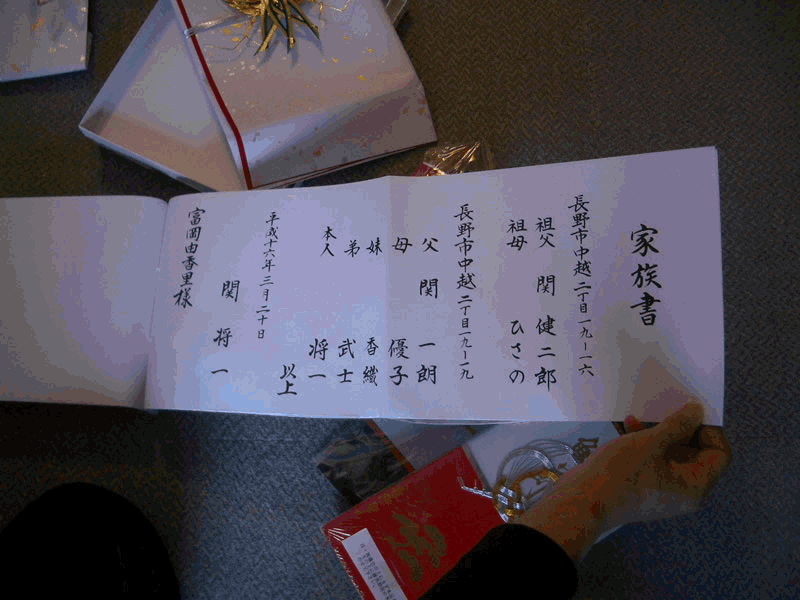 家族書
長野市中越二丁目一九ー一六
祖父 関 健二郎
祖母 ひさの
長野市中越二丁目一九ー一九
父 関 一朗
母 優子
妹 香織
弟 武士
本人 将一
以上
平成十六年三月二十日
関 将一
富岡由香里様